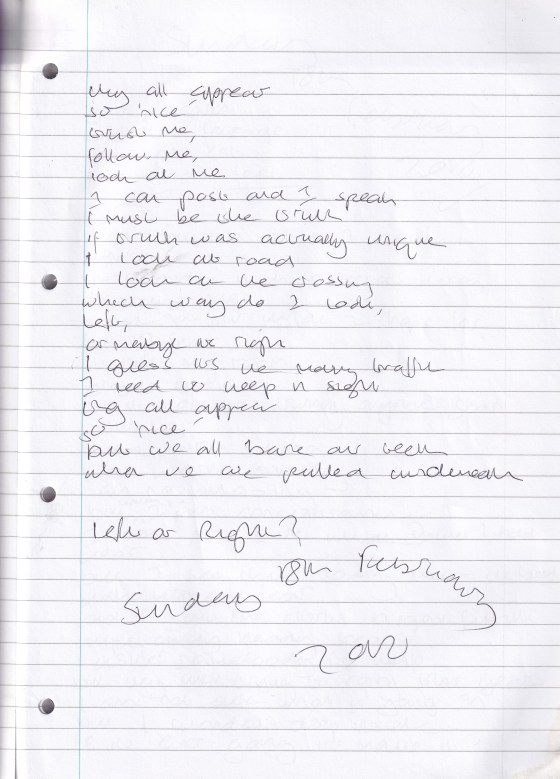 they all appear
so 'nice'
trust me,
follow me,
look at me
I can post and I speak
I must be the truth
if truth was actually unique
I look at road
I look at the crossing
which way do I look,
left,
or maybe the right
I guess its the many traffic
I need to keep in sight
they all appear
so 'nice'
but we all bare our teeth
when we are pulled underneath
Left or Right?
18th February
Sunday